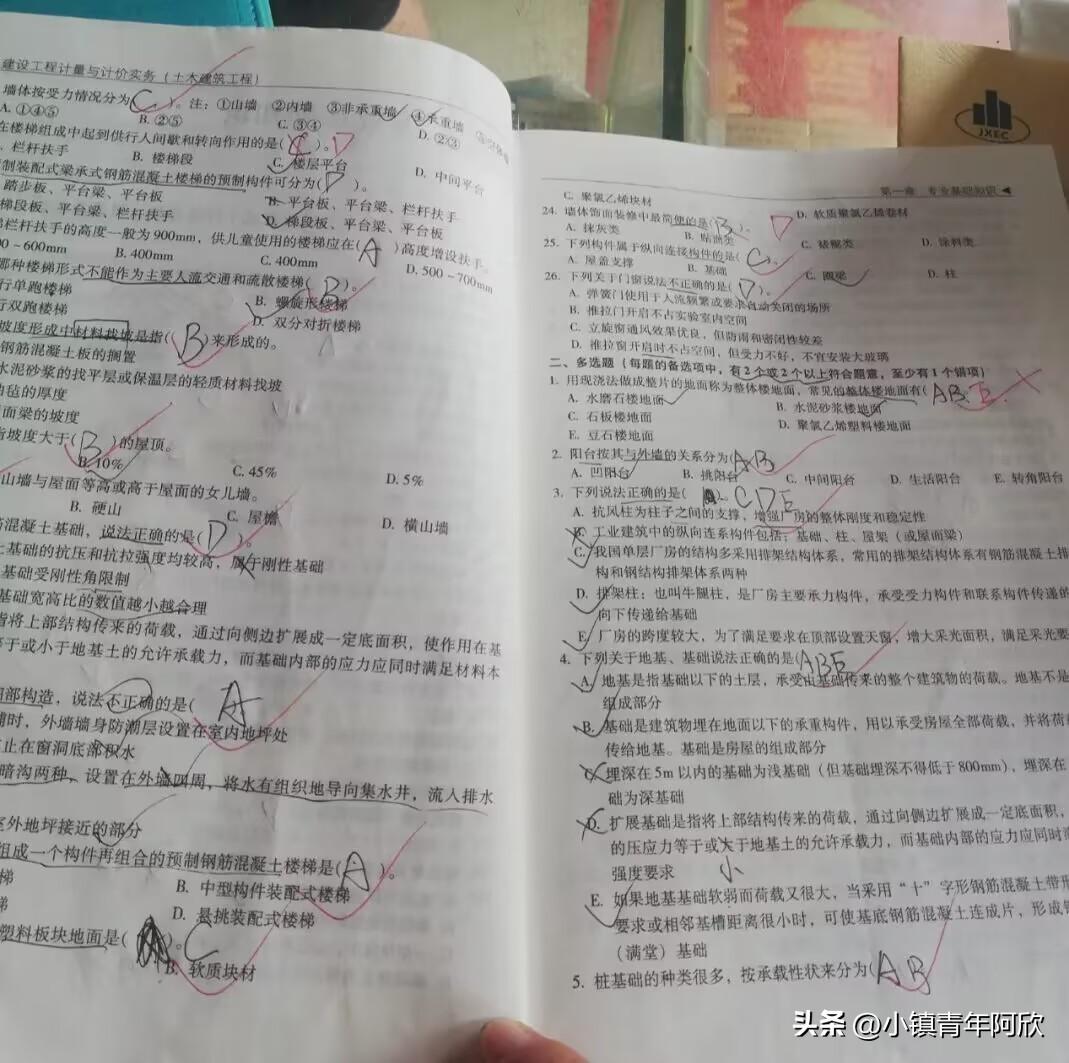 建设工程计量与计价实务（土木建筑工程）
墙体按受力情况分为( C )。注：①山墙 ②内墙 ③非承重墙 ④承重墙
A. ①④⑤ B. ②⑤ C. ③④ D. ②③
在楼梯组成中起到供行人间歇和转向作用的是( )。D
栏杆扶手 B. 楼梯段 C. 楼层平台 D. 中间平台
制装配式梁承式钢筋混凝土楼梯的预制构件可分为( D )。
踏步板、平台梁、平台板 B. 平台板、平台梁、栏杆扶手
梯段板、平台梁、栏杆扶手 D. 梯段板、平台梁、平台板
栏杆扶手的高度一般为900mm，供儿童使用的楼梯应在( A )高度增设扶手。
00～600mm B. 400mm C. 400mm D. 500～700mm
那种楼梯形式不能作为主要人流交通和疏散楼梯( B )。
行单跑楼梯 B. 螺旋形楼梯
行双跑楼梯 D. 双分对折楼梯
坡度形成中材料找坡是指( B )来形成的。
钢筋混凝土板的搁置
水泥砂浆的找平层或保温层的轻质材料找坡
油毡的厚度
面梁的坡度
指坡度大于( B )的屋顶。
B. 10% C. 45% D. 5%
山墙与屋面等高或高于屋面的女儿墙。
B. 硬山 C. 屋檐 D. 横山墙
筋混凝土基础，说法正确的是( D )。
土基础的抗压和抗拉强度均较高，属于刚性基础
基础受刚性角限制
基础宽高比的数值越小越合理
指将上部结构传来的荷载，通过向侧边扩展成一定底面积，使作用在基
等于或小于地基土的允许承载力，而基础内部的应力应同时满足材料本
细部构造，说法不正确的是( A
铺时，外墙墙身防潮层设置在室内地坪处
止在窗洞底部积水
暗沟两种，设置在外墙四周，将水有组织地导向集水井，流入排水
室外地坪接近的部分
组成一个构件再组合的预制钢筋混凝土楼梯是( A )。
梯 B. 中型构件装配式楼梯
梯 D. 悬挑装配式楼梯
塑料板块地面是( )。C
B. 软质块材
第一章 专业基础知识
C. 聚氯乙烯块材 D. 软质聚氯乙烯卷材
24. 墙体饰面装修中最简便的是( B )。
A. 抹灰类 B. 贴面类 C. 裱糊类 D. 涂料类
25. 下列构件属于纵向连接构件的是( C )。
A. 屋盖支撑 B. 基础 C. 圈梁 D. 柱
26. 下列关于门窗说法不正确的是( D )。
A. 弹簧门使用于人流频繁或要求自动关闭的场所
B. 推拉门开启不占实验室内空间
C. 立旋窗通风效果优良，但防雨和密闭性较差
D. 推拉窗开启时不占空间，但受力不好，不宜安装大玻璃
二、多选题（每题的备选项中，有2个或2个以上符合题意，至少有1个错项）
1. 用现浇法做成整片的地面称为整体楼地面，常见的整体楼地面有( AB E
A. 水磨石楼地面 B. 水泥砂浆楼地面
C. 石板楼地面 D. 聚氯乙烯塑料楼地面
E. 豆石楼地面
2. 阳台按其与外墙的关系分为( AB
A. 凹阳台 B. 挑阳台 C. 中间阳台 D. 生活阳台 E. 转角阳台
3. 下列说法正确的是( CDE
A. 抗风柱为柱子之间的支撑，增强厂房的整体刚度和稳定性
B. 工业建筑中的纵向连系构件包括：基础、柱、屋架（或屋面梁）
C. 我国单层厂房的结构多采用排架结构体系，常用的排架结构体系有钢筋混凝土排
构和钢结构排架体系两种
D. 排架柱：也叫牛腿柱，是厂房主要承力构件，承受受力构件和联系构件传递的
向下传递给基础
E. 厂房的跨度较大，为了满足要求在顶部设置天窗，增大采光面积，满足采光要
4. 下列关于地基、基础说法正确的是( ABE
A. 地基是指基础以下的土层，承受由基础传来的整个建筑物的荷载。地基不是
组成部分
B. 基础是建筑物埋在地面以下的承重构件，用以承受房屋全部荷载，并将荷
传给地基。基础是房屋的组成部分
C. 埋深在5m以内的基础为浅基础（但基础埋深不得低于800mm），埋深在
础为深基础
D. 扩展基础是指将上部结构传来的荷载，通过向侧边扩展成一定底面积，
的压应力等于或大于地基土的允许承载力，而基础内部的应力应同时
强度要求 小
E. 如果地基基础软弱而荷载又很大，当采用“十”字形钢筋混凝土带形
要求或相邻基槽距离很小时，可使基底钢筋混凝土连成片，形成
（满堂）基础
5. 桩基础的种类很多，按承载性状来分为( AB
JXEC
头条 @小镇青年阿欣